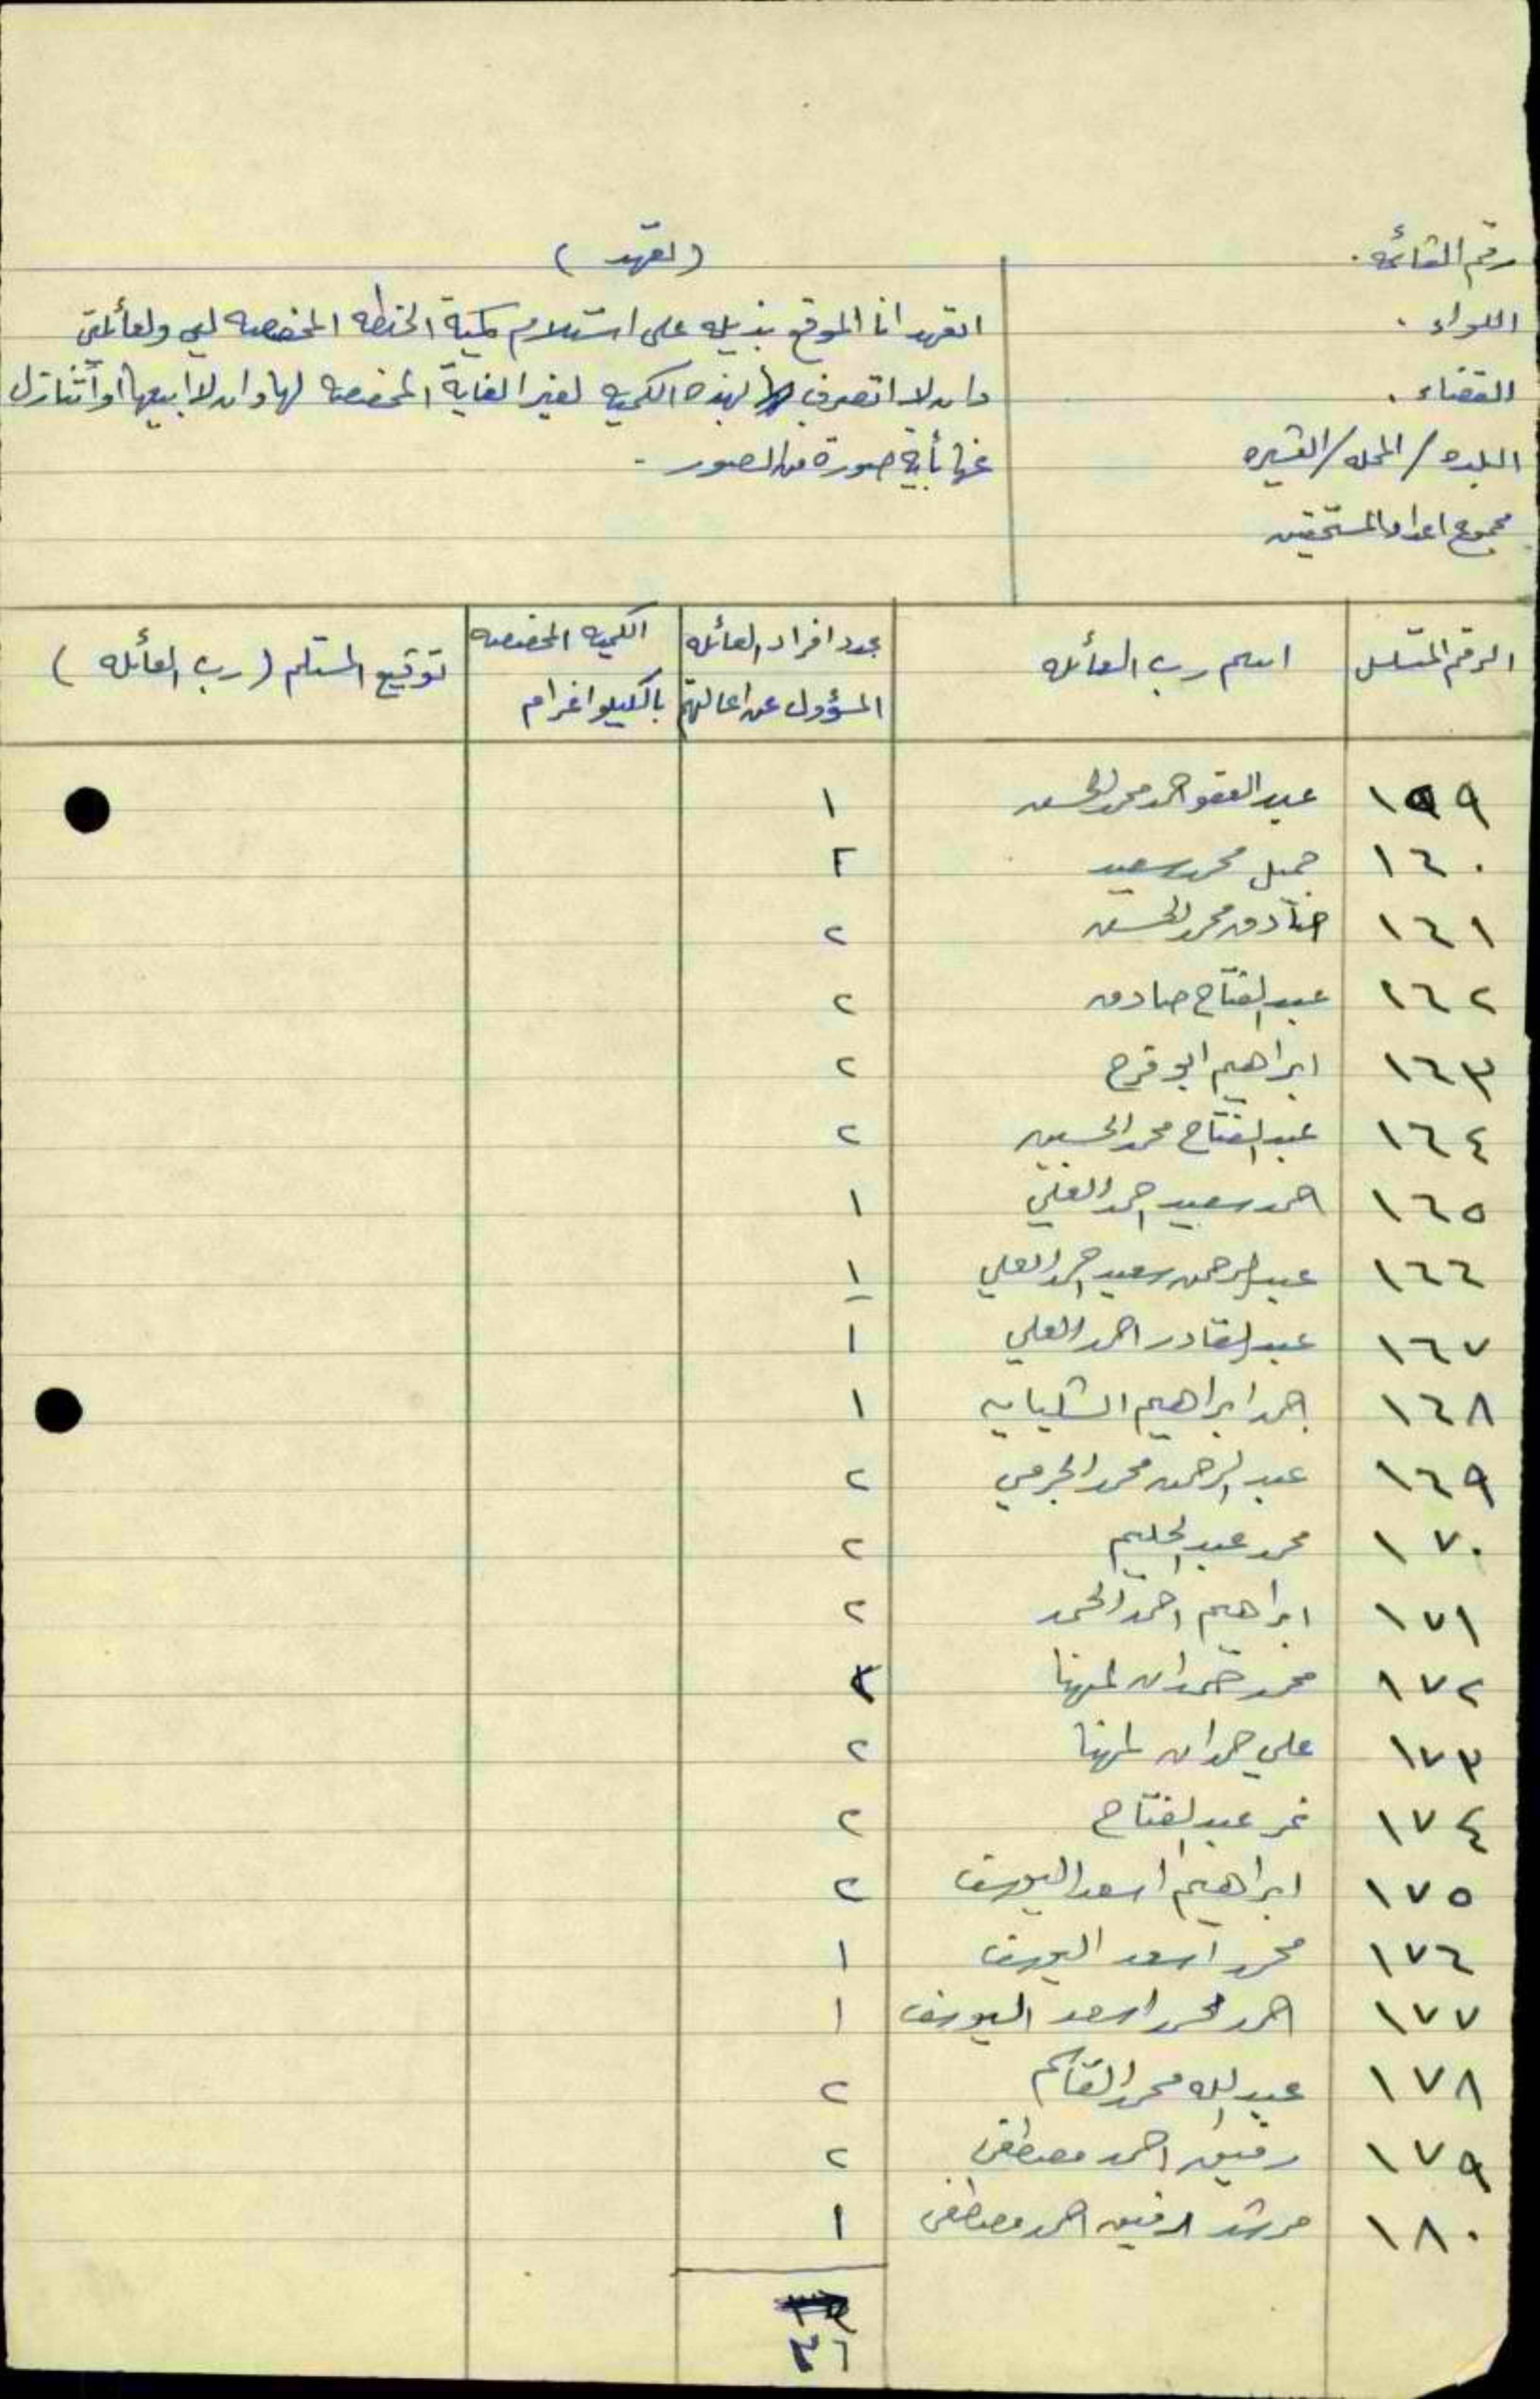 رقم القائمه .
اللواء .
القضاء .
البلده / المحله / العشيره
مجموع اعداد المستحقين
( تعهد )
اتعهد انا الموقع بذيله على استلام كمية الحنطه المخصصه لي ولعائلتي
وان لا اتصرف بهذه الكميه لغير الغاية المخصصه لها وان لا ابيعها او أتنازل
عنها بأية صورة من الصور .-
الرقم المتسلسل | اسم رب العائله | عدد افراد العائله المسؤول عن اعالتهم | الكميه المخصصه بالكيلو اغرام | توقيع المستلم ( رب العائله )
١٥٩ عبد العفو احمد محمد الحسن ١
١٦٠ جميل محمد سعيد ٢
١٦١ صادق محمد الحسن ٢
١٦٢ عبد الفتاح صادق ٢
١٦٣ ابراهيم ابو قرح ٢
١٦٤ عبد الفتاح محمد الحسين ٢
١٦٥ احمد سعيد احمد العلي ١
١٦٦ عبد الرحمن سعيد احمد العلي ١
١٦٧ عبد القادر احمد العلي ١
١٦٨ احمد ابراهيم ١
١٦٩ عبد الرحمن محمد الجرمي ٢
١٧٠ محمد عبد الحليم ٢
١٧١ ابراهيم احمد الحمد ٢
١٧٢ محمد حمدان المهنا ٢
١٧٣ علي حمدان المهنا ٢
١٧٤ نمر عبد الفتاح ٢
١٧٥ ابراهيم اسعد اليوسف ٢
١٧٦ محمد اسعد اليوسف ١
١٧٧ احمد محمد اسعد اليوسف ١
١٧٨ عبد الله محمد القاسم ٢
١٧٩ رفيق احمد مصطفى ٢
١٨٠ مرشد رفيق احمد مصطفى ١